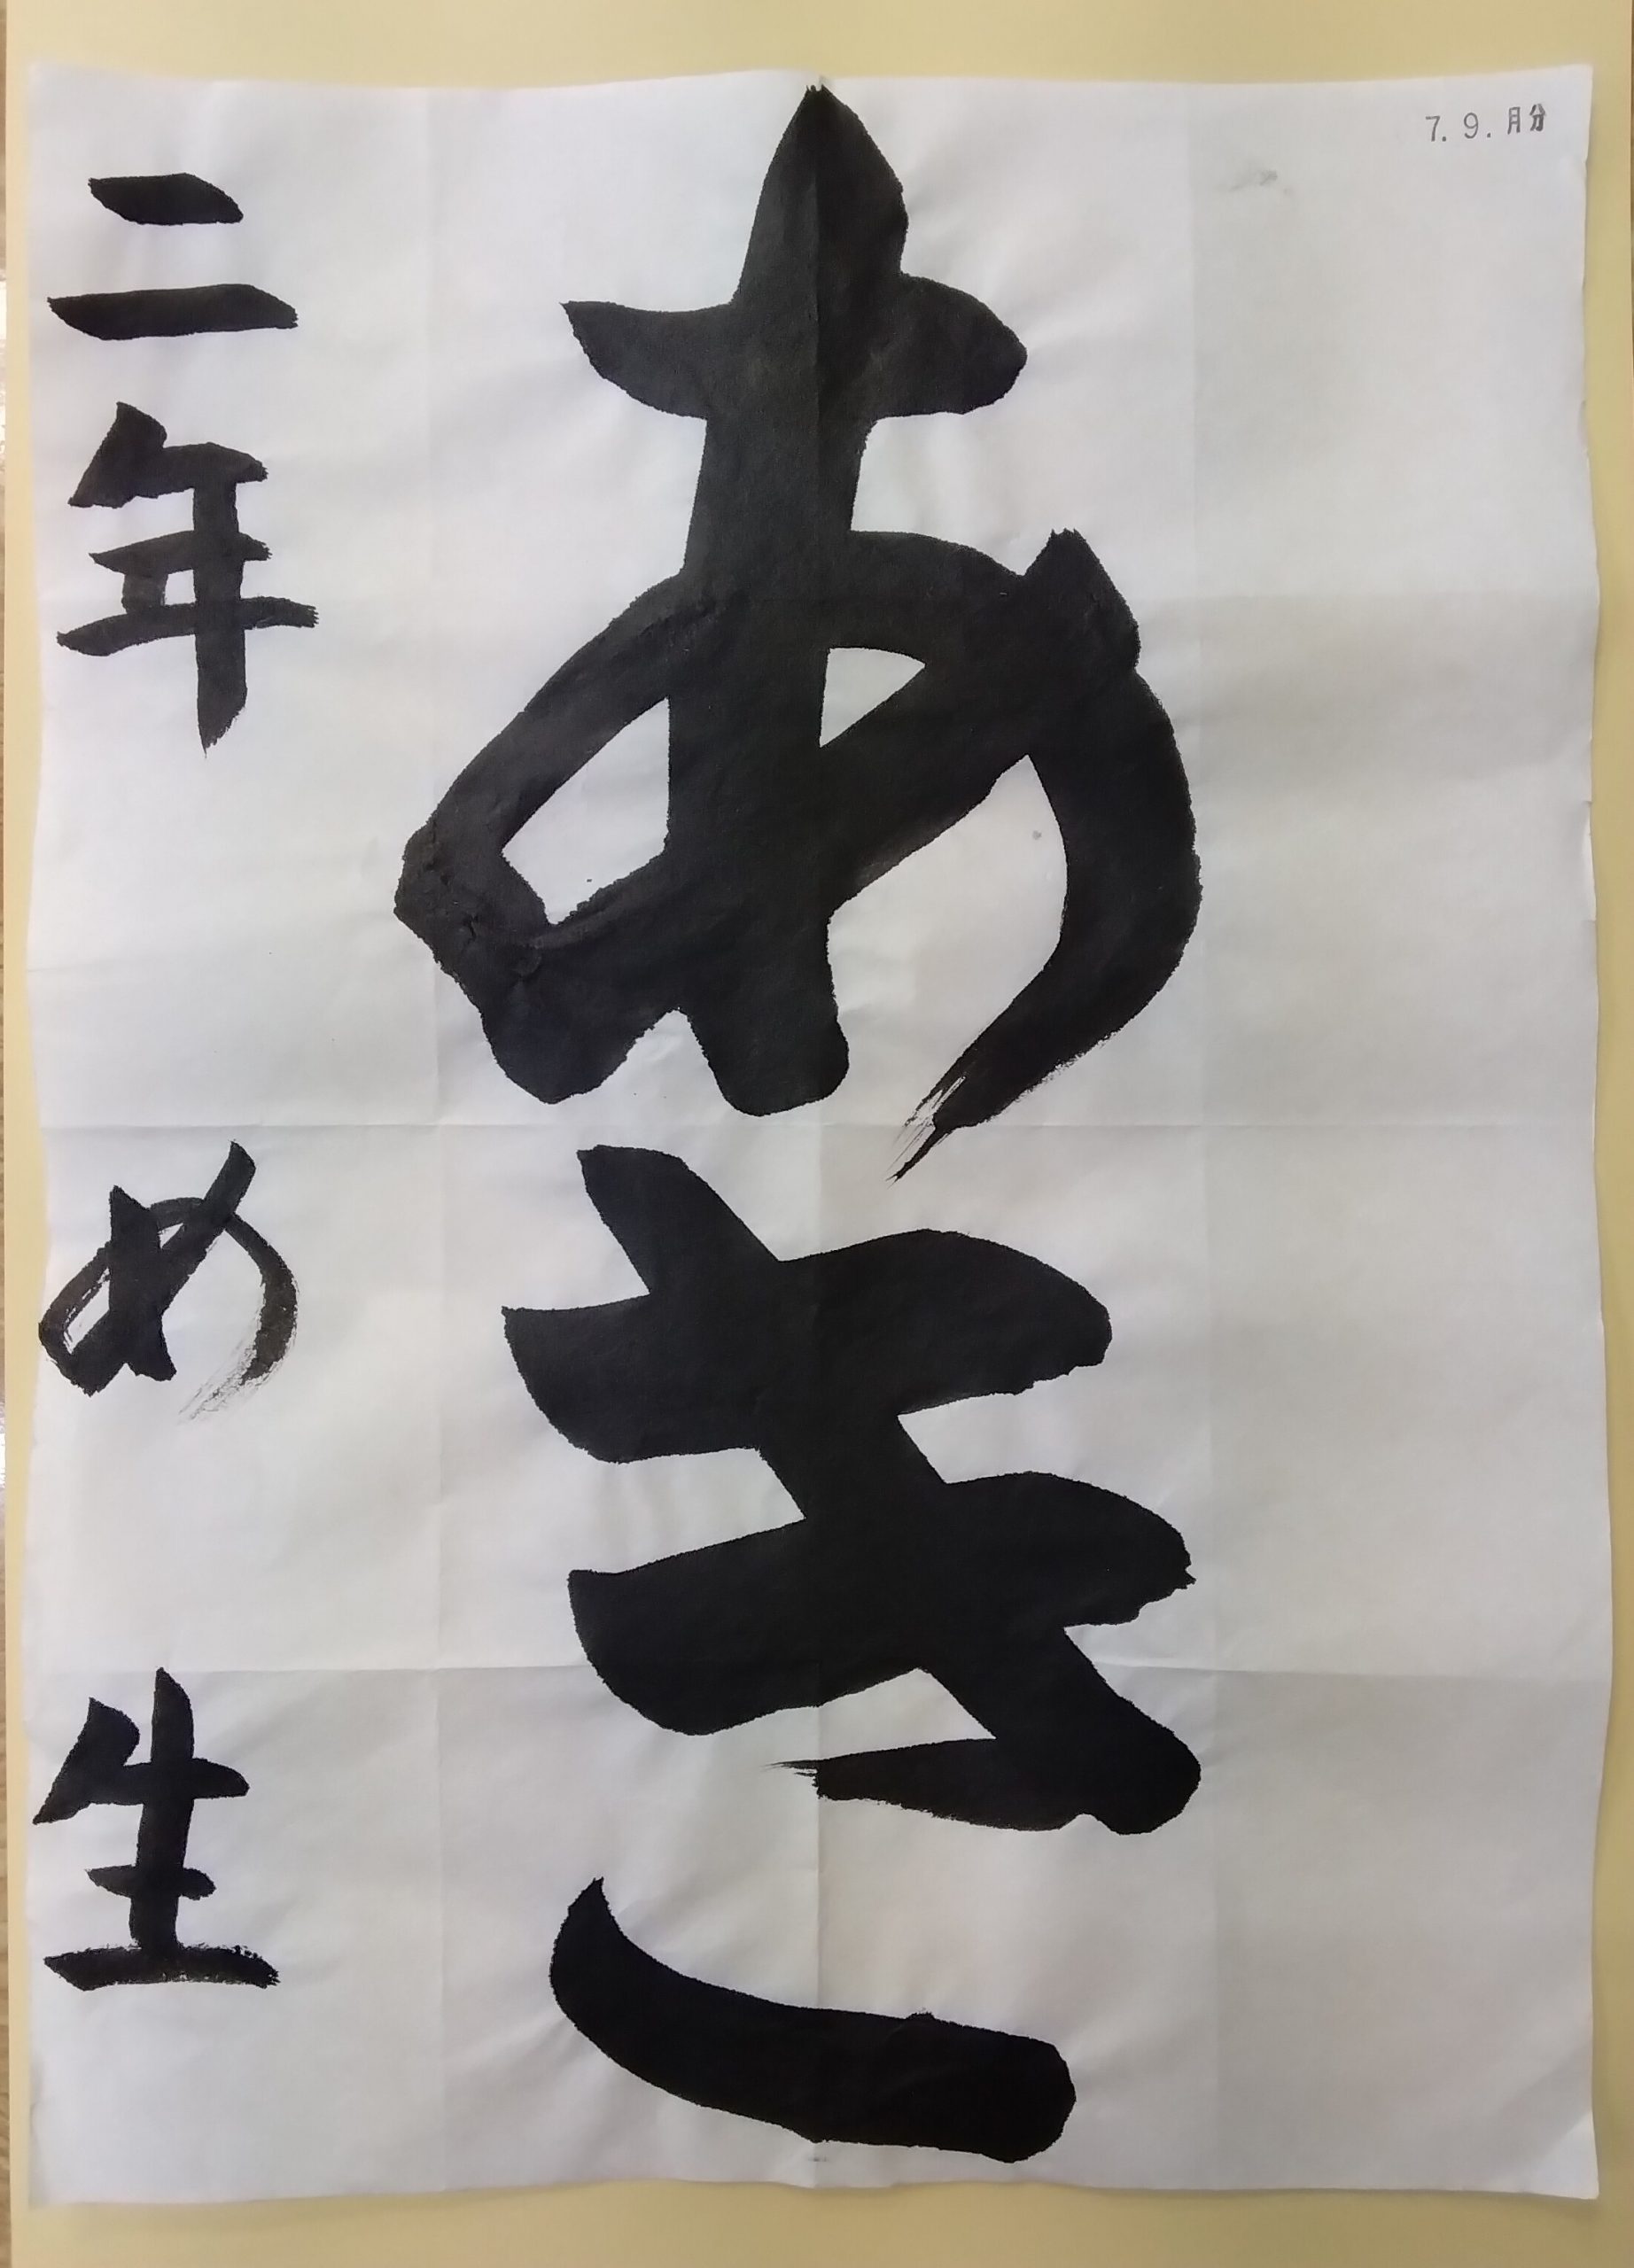 7.9.月分
あき
二年 め 生